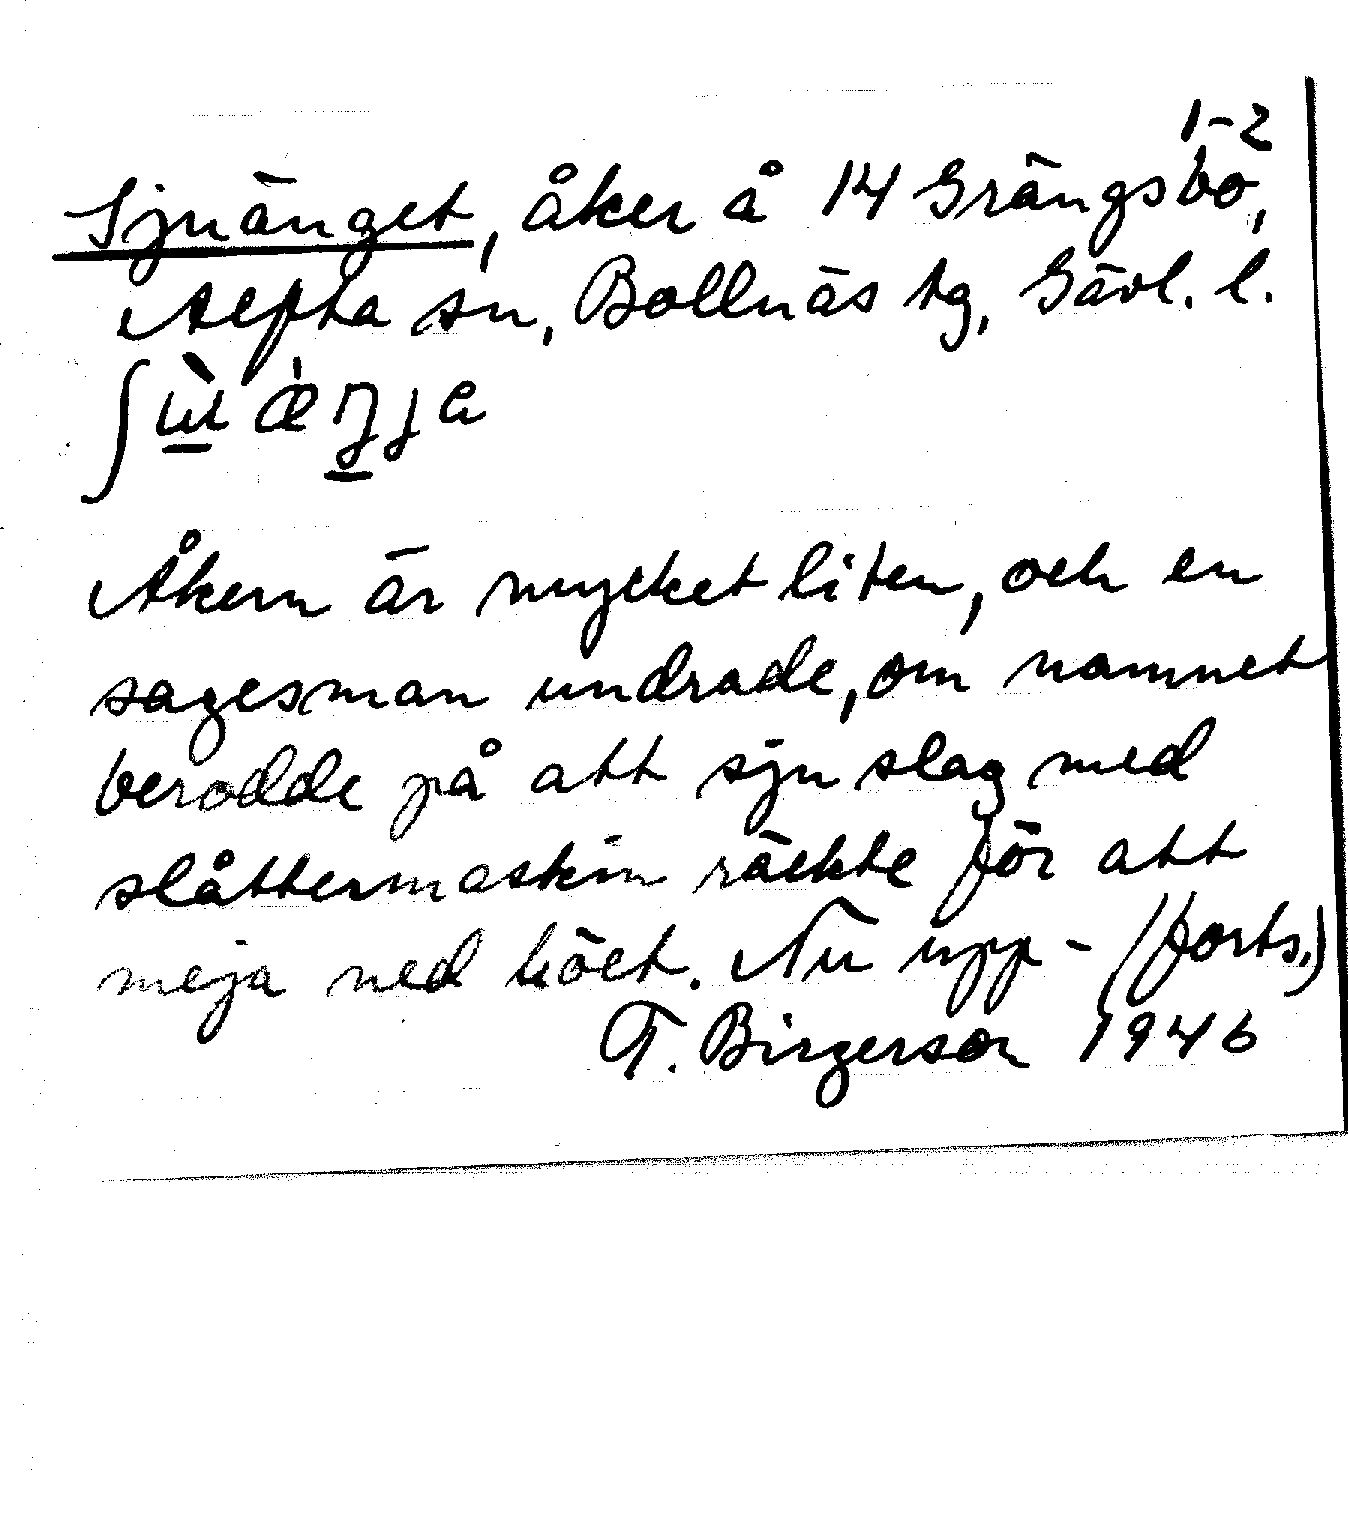 1-2
Sjuänget, åker å 14 Grängsbo,
Alfta sn, Bollnäs tg, Gävl. l.
Åkern är mycket liten, och en
sagesman undrade, om namnet
berodde på att sju slag med
slåttermaskin räckte för att
meja ned höet. Nu upp- (forts.)
T. Birgerson 1946